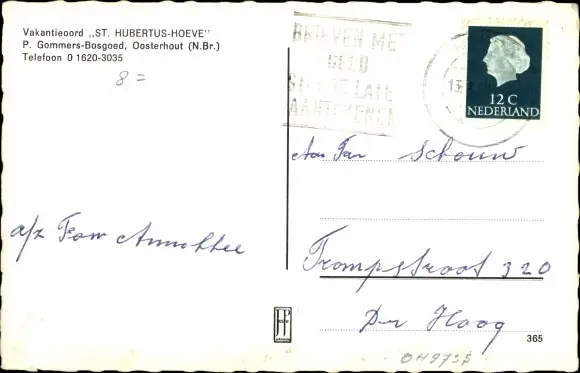 Vakantieoord „ST. HUBERTUS-HOEVE"
P. Gommers-Bosgoed, Oosterhout (N.Br.)
Telefoon 0 1620-3035
8 =
BRIEVEN MET
GELD
STEEDS LATEN
AANTEKENEN
12 C
NEDERLAND
Aan Fam Schouw
a/z Fam
Trompstraat 320
Den Haag
365
OH973